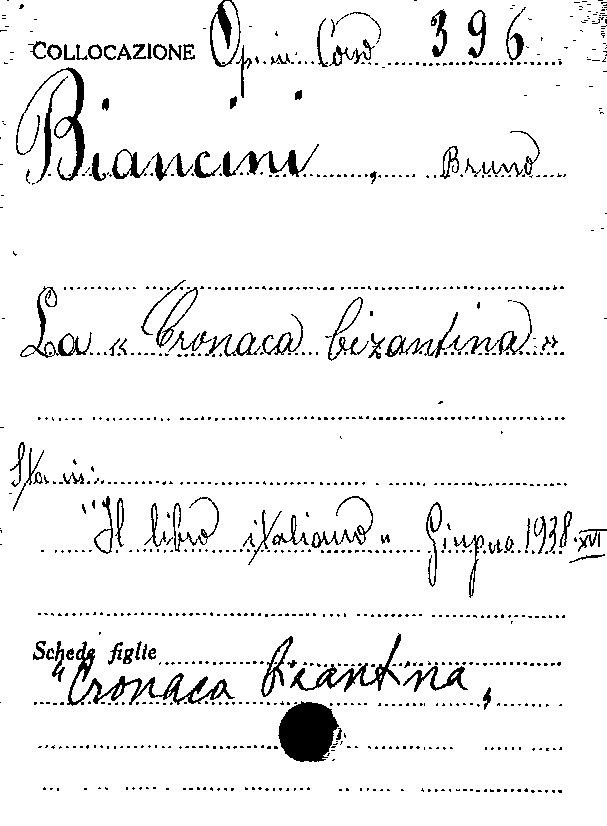 COLLOCAZIONE Op. in Corso 396
Biancini, Bruno
La « Cronaca bizantina »
Sta in:
"Il libro italiano" Giugno 1938-XVI
Schede figlie
"Cronaca Biantina,